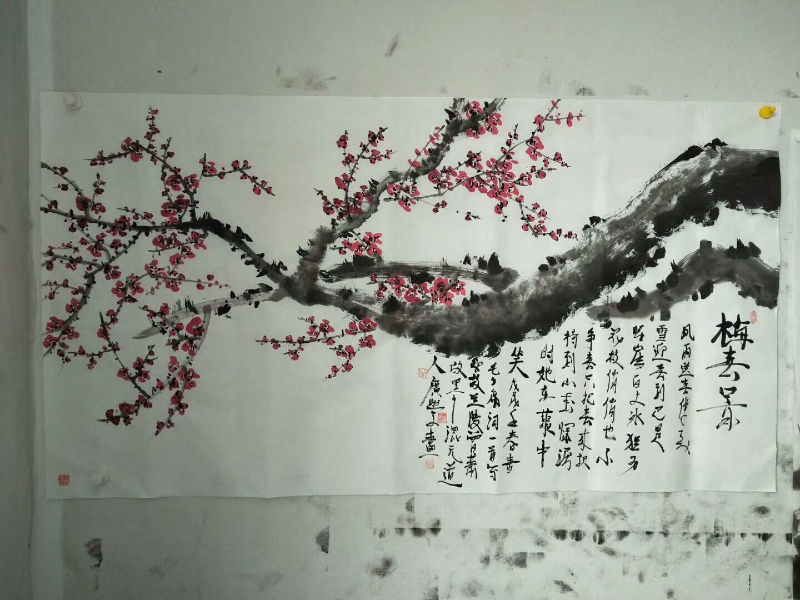 梅春景
风雨送春归飞
雪迎春到已是
悬崖百丈冰犹有
花枝俏俏也不
争春只把春来报
待到山花烂漫
时她在丛中
笑 戊戌年春书
毛主席词一首写
故里 混元道
人